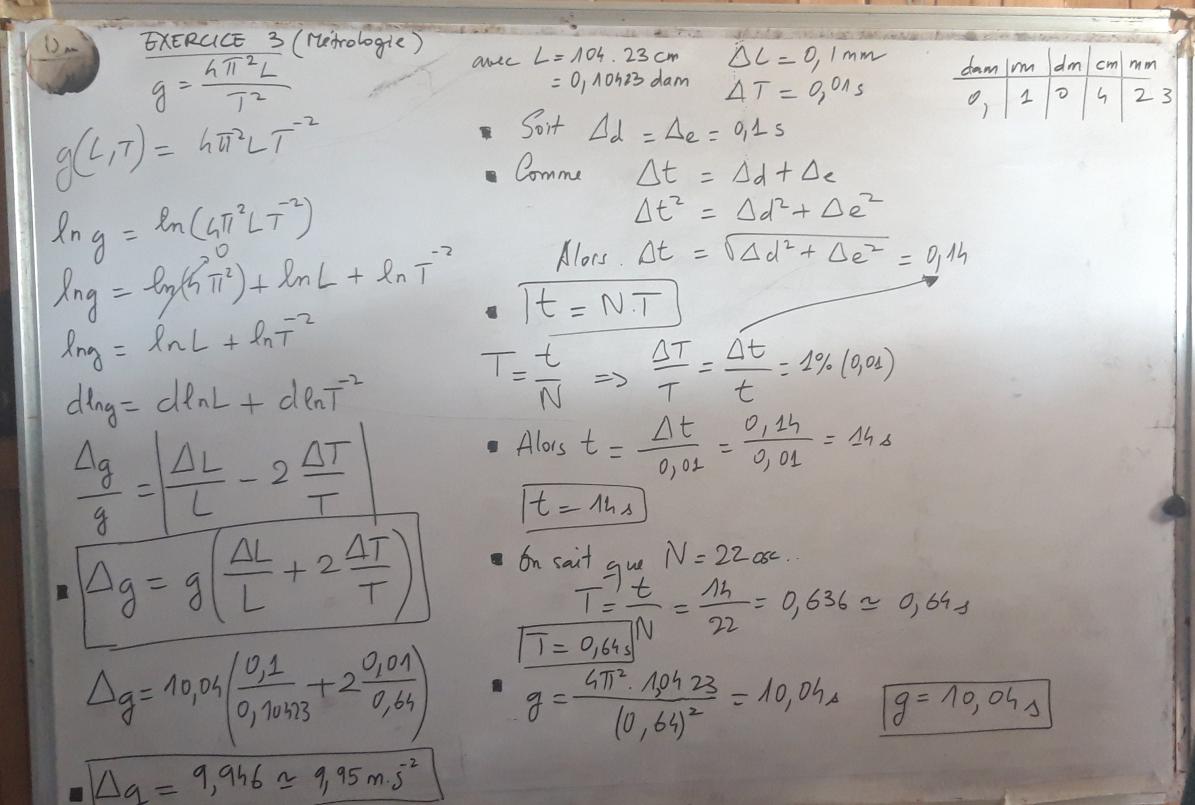 EXERCICE 3 (Métrologie)
g = 4π²L / T²
g(L,T) = 4π²LT⁻²
ln g = ln(4π²LT⁻²)
0
ln g = ln(4π²) + ln L + ln T⁻²
ln g = ln L + ln T⁻²
dlng = dlnL + dlnT⁻²
Δg/g = |ΔL/L - 2 ΔT/T|
▪ Δg = g(ΔL/L + 2 ΔT/T)
Δg = 10,04(0,1/0,10423 + 2 0,01/0,64)
▪ Δg = 9,946 ≃ 9,95 m.s⁻²
avec L = 104.23 cm ΔL = 0,1mm
= 0,10423 dam ΔT = 0,01s
dam | m | dm | cm | mm
0, | 1 | 0 | 4 | 2 3
▪ Soit Δd = Δe = 0,1 s
▪ Comme Δt = Δd + Δe
Δt² = Δd² + Δe²
Alors. Δt = √(Δd² + Δe²) = 0,14
▪ t = N.T
T = t/N => ΔT/T = Δt/t = 1% (0,01)
▪ Alors t = Δt/0,01 = 0,14/0,01 = 14 s
t = 14s
▪ On sait que N = 22 osc..
T = t/N = 14/22 = 0,636 ≃ 0,64 s
T = 0,64s
▪ g = 4π². 1,0423 / (0,64)² = 10,04s g = 10,04 s